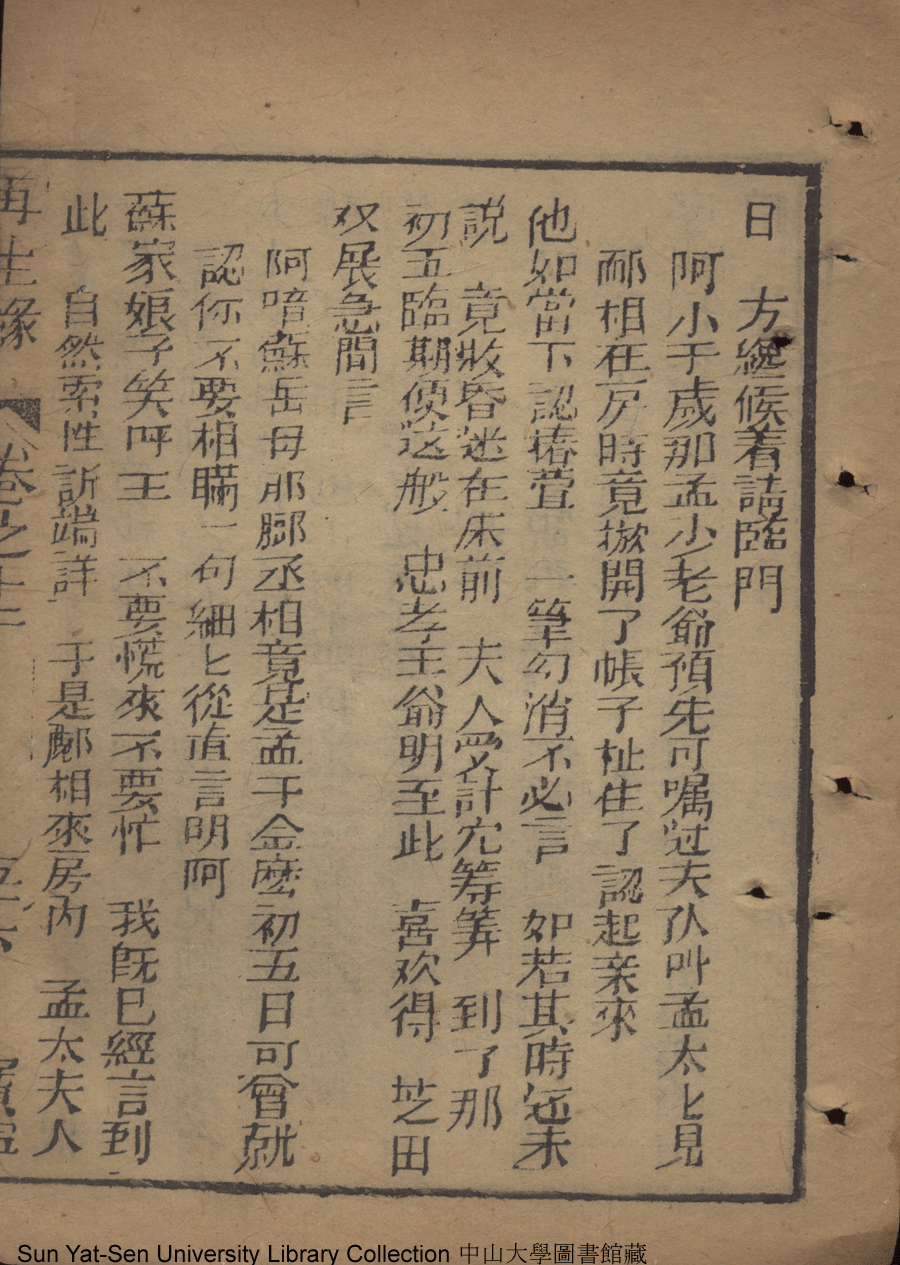 日　方纔候着請臨門
阿小千歲那孟少老爺預先可囑过夫人叫孟太〻見
郦相在房時竟撳開了帳子扯住了認起亲來
他如當下認椿萱　一筆勾消不必言　如若其時还未
説　竟收昏迷在床前　夫人受計穴筹筭　到了那
初五臨期便这般　忠孝王爺明至此　喜欢得　芝田
双展急開言
阿喑蘇岳母那郦丞相竟是孟千金麽初五日可曾就
認你不要相瞞一句細〻從直言明阿
蘇家娘子笑呼王　不要慌來不要忙　我既已經言到
此　自然索性訴端詳　于是郦相來房內　孟太夫人
再生緣　卷之十二
Sun Yat-Sen University Library Collection 中山大學圖書館藏